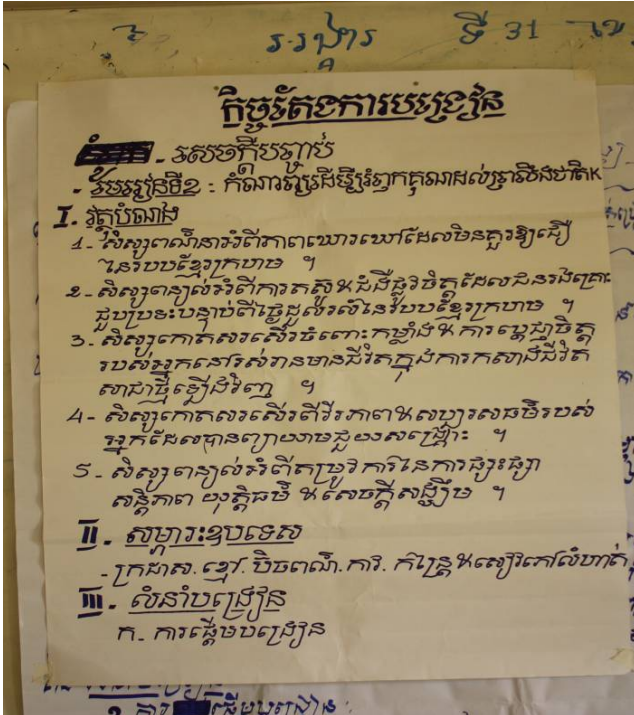 រ.រង្គារ ទី 31
កិច្ចតែងការបង្រៀន
- សេចក្ដីបញ្ចប់
- របៀបរៀនទី១ :
I. វត្ថុបំណង
1- សិស្សពណ៌នាអំពីភាពឃោរឃៅដែលមិនគួរឱ្យជឿ
នៃរបបខ្មែរក្រហម ។
2- សិស្សពន្យល់អំពីការតស៊ូ & ជំងឺផ្លូវចិត្តដែលជនរងគ្រោះ
ជួបប្រទះបន្ទាប់ពីថ្ងៃដួលរលំនៃរបបខ្មែរក្រហម ។
3- សិស្សកោតសរសើរចំពោះកម្លាំង & ការប្ដេជ្ញាចិត្ត
របស់អ្នកនៅរស់រានមានជីវិតក្នុងការកសាងជីវិត
សាជាថ្មីឡើងវិញ ។
4- សិស្សកោតសរសើរពីវីរភាព & សប្បុរសធម៌របស់
អ្នកដែលបានព្យាយាមជួយសង្គ្រោះ ។
5- សិស្សពន្យល់អំពីតម្រូវការនៃការផ្សះផ្សា
សន្តិភាព យុត្តិធម៌ & សេចក្ដីសង្ឃឹម ។
II. សម្ភារះឧបទេស
- ក្រដាស. ខ្មៅ. ប៊ិចពណ៌. កាវ. កន្ត្រៃ & សៀវភៅលំហាត់
III. លំនាំបង្រៀន
ក- ការផ្ដើមបង្រៀន